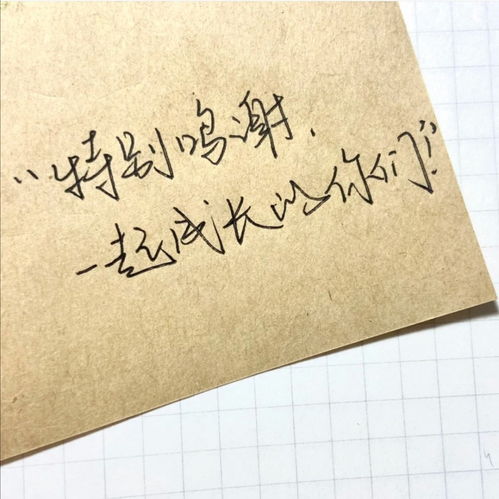 “特别鸣谢，
一起成长的你们！”